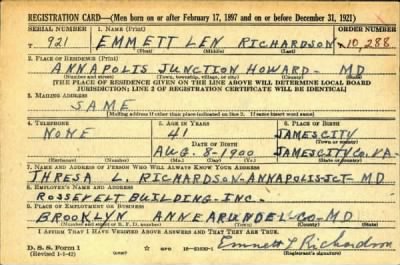 REGISTRATION CARD—(Men born on or after February 17, 1897 and on or before December 31, 1921)
SERIAL NUMBER 1. NAME (Print) ORDER NUMBER
921 EMMETT LEN RICHARDSON 10,288
(First) (Middle) (Last)
2. PLACE OF RESIDENCE (Print)
ANNAPOLIS JUNCTION HOWARD- MD
(Number and street) (Town, township, village, or city) (County) (State)
[THE PLACE OF RESIDENCE GIVEN ON THE LINE ABOVE WILL DETERMINE LOCAL BOARD
JURISDICTION; LINE 2 OF REGISTRATION CERTIFICATE WILL BE IDENTICAL]
3. MAILING ADDRESS
SAME
(Mailing address if other than place indicated on line 2. If same insert word same)
4. TELEPHONE 5. AGE IN YEARS 6. PLACE OF BIRTH
NONE 41 JAMES CITY
DATE OF BIRTH (Town or county)
AUG. 8-1900 JAMES CITY CO. VA.
(Exchange) (Number) (Mo.) (Day) (Yr.) (State or country)
7. NAME AND ADDRESS OF PERSON WHO WILL ALWAYS KNOW YOUR ADDRESS
THRESA L. RICHARDSON-ANNAPOLIS-JCT-MD
8. EMPLOYER'S NAME AND ADDRESS
ROSSEVELT BUILDING-INC.
9. PLACE OF EMPLOYMENT OR BUSINESS
BROOKLYN ANNE ARUNDEL CO-MD
(Number and street or R. F. D. number) (Town) (County) (State)
I AFFIRM THAT I HAVE VERIFIED ABOVE ANSWERS AND THAT THEY ARE TRUE.
D. S. S. Form 1
(Revised 1-1-42) (over) Emmett L Richardson
(Registrant's signature)